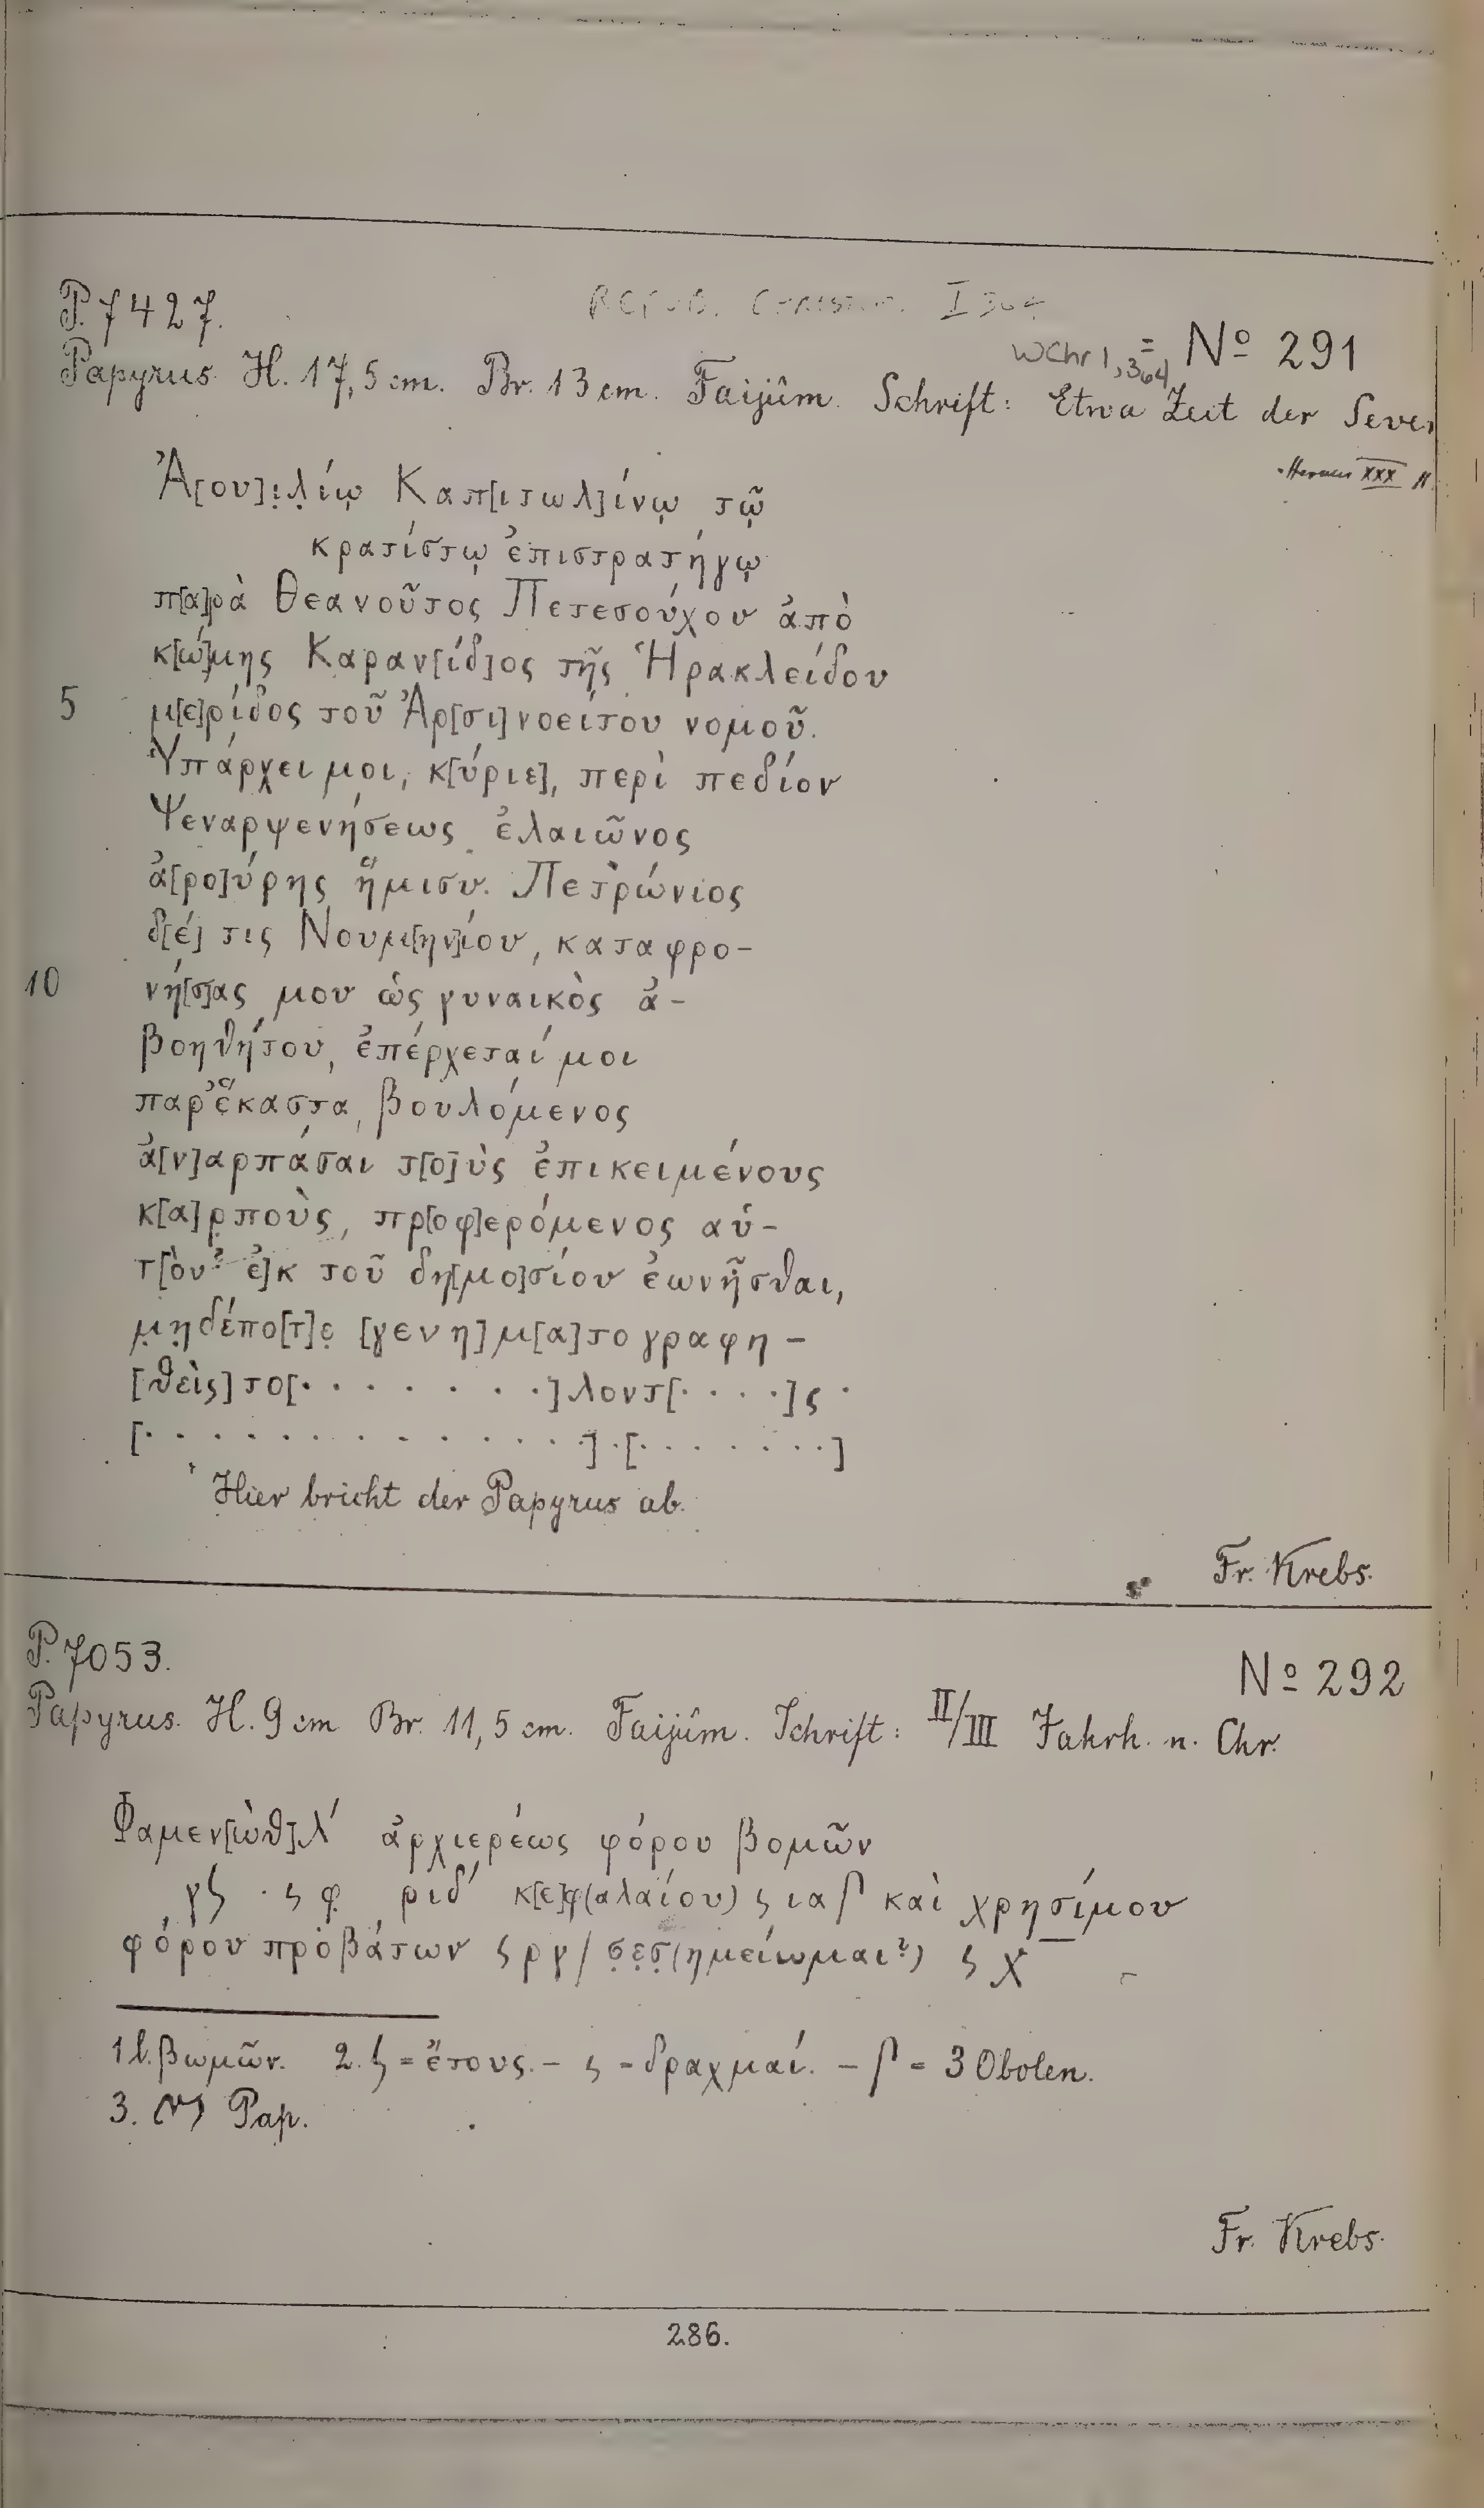 P. 7427.
WChr 1, 364 = Nº 291
Papyrus H. 17,5 cm. Br. 13 cm. Faijûm. Schrift: Etwa Zeit der Sever
Ἀ[ου]ι̣λ̣ίῳ Καπ[ιτωλ]ίνῳ τῷ
κρατίστῳ ἐπιστρατήγῳ
π[α]ρὰ Θεανοῦτος Πετεσούχου ἀπὸ
κ[ώ]μης Καραν[ίδ]ος τῆς Ἡρακλείδου
5 μ[ε]ρίδος τοῦ Ἀρ[σι]νοείτου νομοῦ.
Ὑπάρχει μοι, κ[ύριε], περὶ πεδίον
Ψεναρψενήσεως ἐλαιῶνος
ἀ[ρο]ύρης ἥμισυ. Πετρώνιος
δ[έ] τις Νουμ[ην]ίου, καταφρο-
10 νή[σ]ας μου ὡς γυναικὸς ἀ-
βοηθήτου, ἐπέρχεταί μοι
παρ' ἕκαστα, βουλόμενος
ἀ[ν]αρπάσαι τ[ο]ὺς ἐπικειμένους
κ[α]ρ̣ποὺς, πρ[οφ]ερόμενος αὐ-
τ[ὸν? ἐ]κ τοῦ δη[μο]σίου ἐωνῆσθαι,
μ̣η̣δέπο[τ]ε̣ [γενη]μ[α]τογραφη-
[θεὶς] το[· · · · · · · ·]λοντ[· · · ·]ς ·
[· · · · · · · · · · · · · ·] · [· · · · · · ·]
Hier bricht der Papyrus ab.
Fr. Krebs.
P. 7053.
Nº 292
Papyrus. H. 9 cm Br. 11,5 cm. Faijûm. Schrift: II/III Jahrh. n. Chr.
Φαμεν[ὼθ] λ' ἀρχιερέως φόρου βομῶν
γϛ · ς φ̣ ριδ' κ[ε]φ(αλαίου) ς ια ʃ καὶ χρησίμου
φόρου προβάτων ς ργ / σ̣ε̣σ̣(ημείωμαι?) ς χ
1 l. βωμῶν. 2. ϛ = ἔτους. – ς = δραχμαί. – ʃ = 3 Obolen.
3. Pap.
Fr. Krebs.
286.